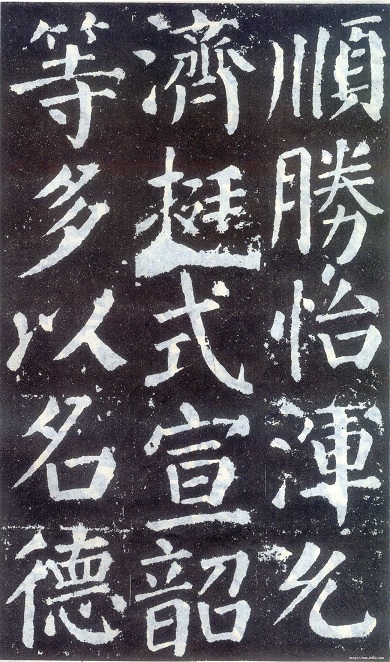 順勝怡渾允
濟挺式宣韶
等多以名德